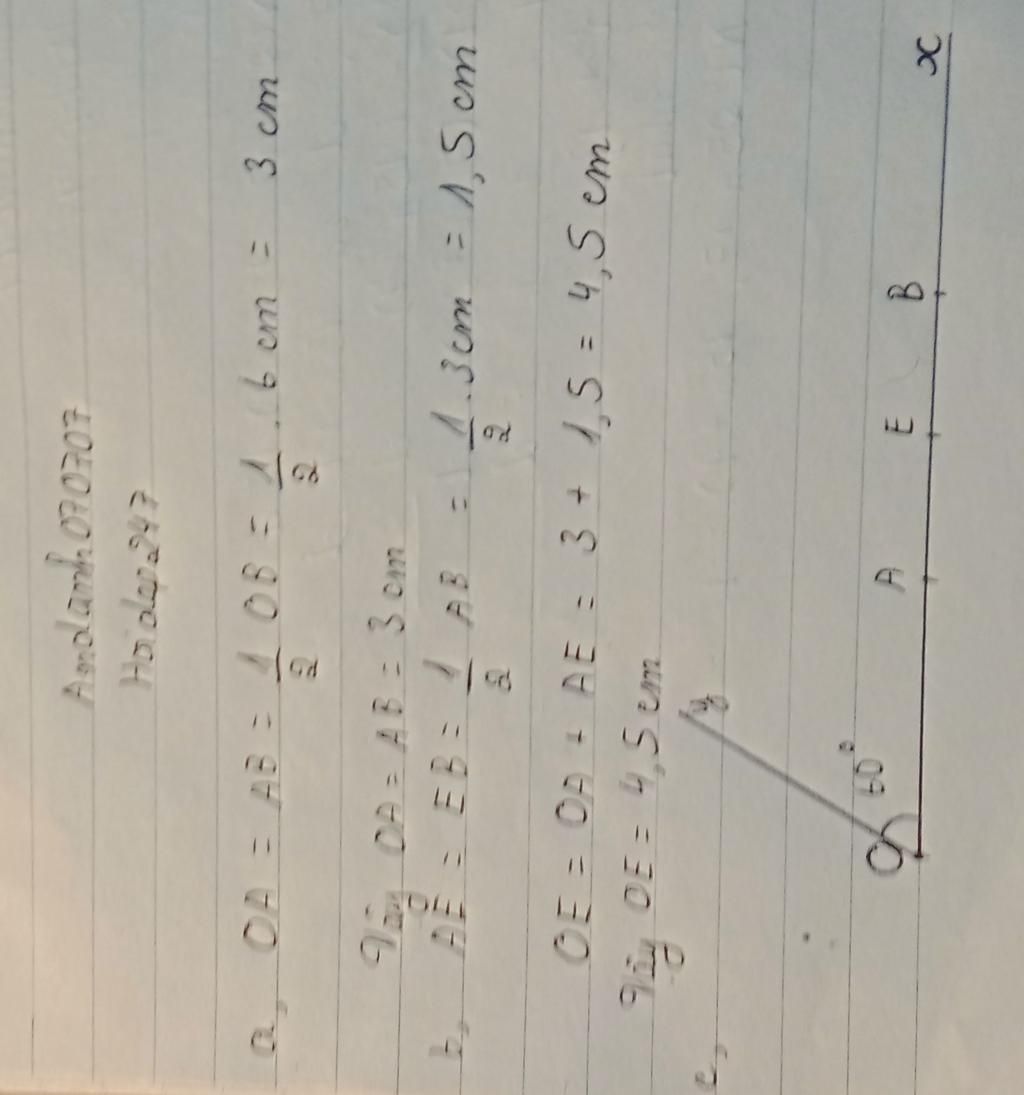 Andanh070707
Hoidap247
a, OA = AB = 1/2 OB = 1/2 . 6 cm = 3 cm
Vậy OA = AB = 3 cm
b, AE = EB = 1/2 AB = 1/2 . 3cm = 1,5 cm
OE = OA + AE = 3 + 1,5 = 4,5 cm
Vậy OE = 4,5 cm
c,
y
60°
O A E B x